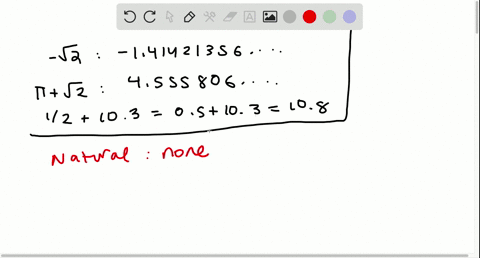 -√2 : -1.41421356....
π+√2 : 4.555806....
1/2 + 10.3 = 0.5+10.3 = 10.8
Natural : none